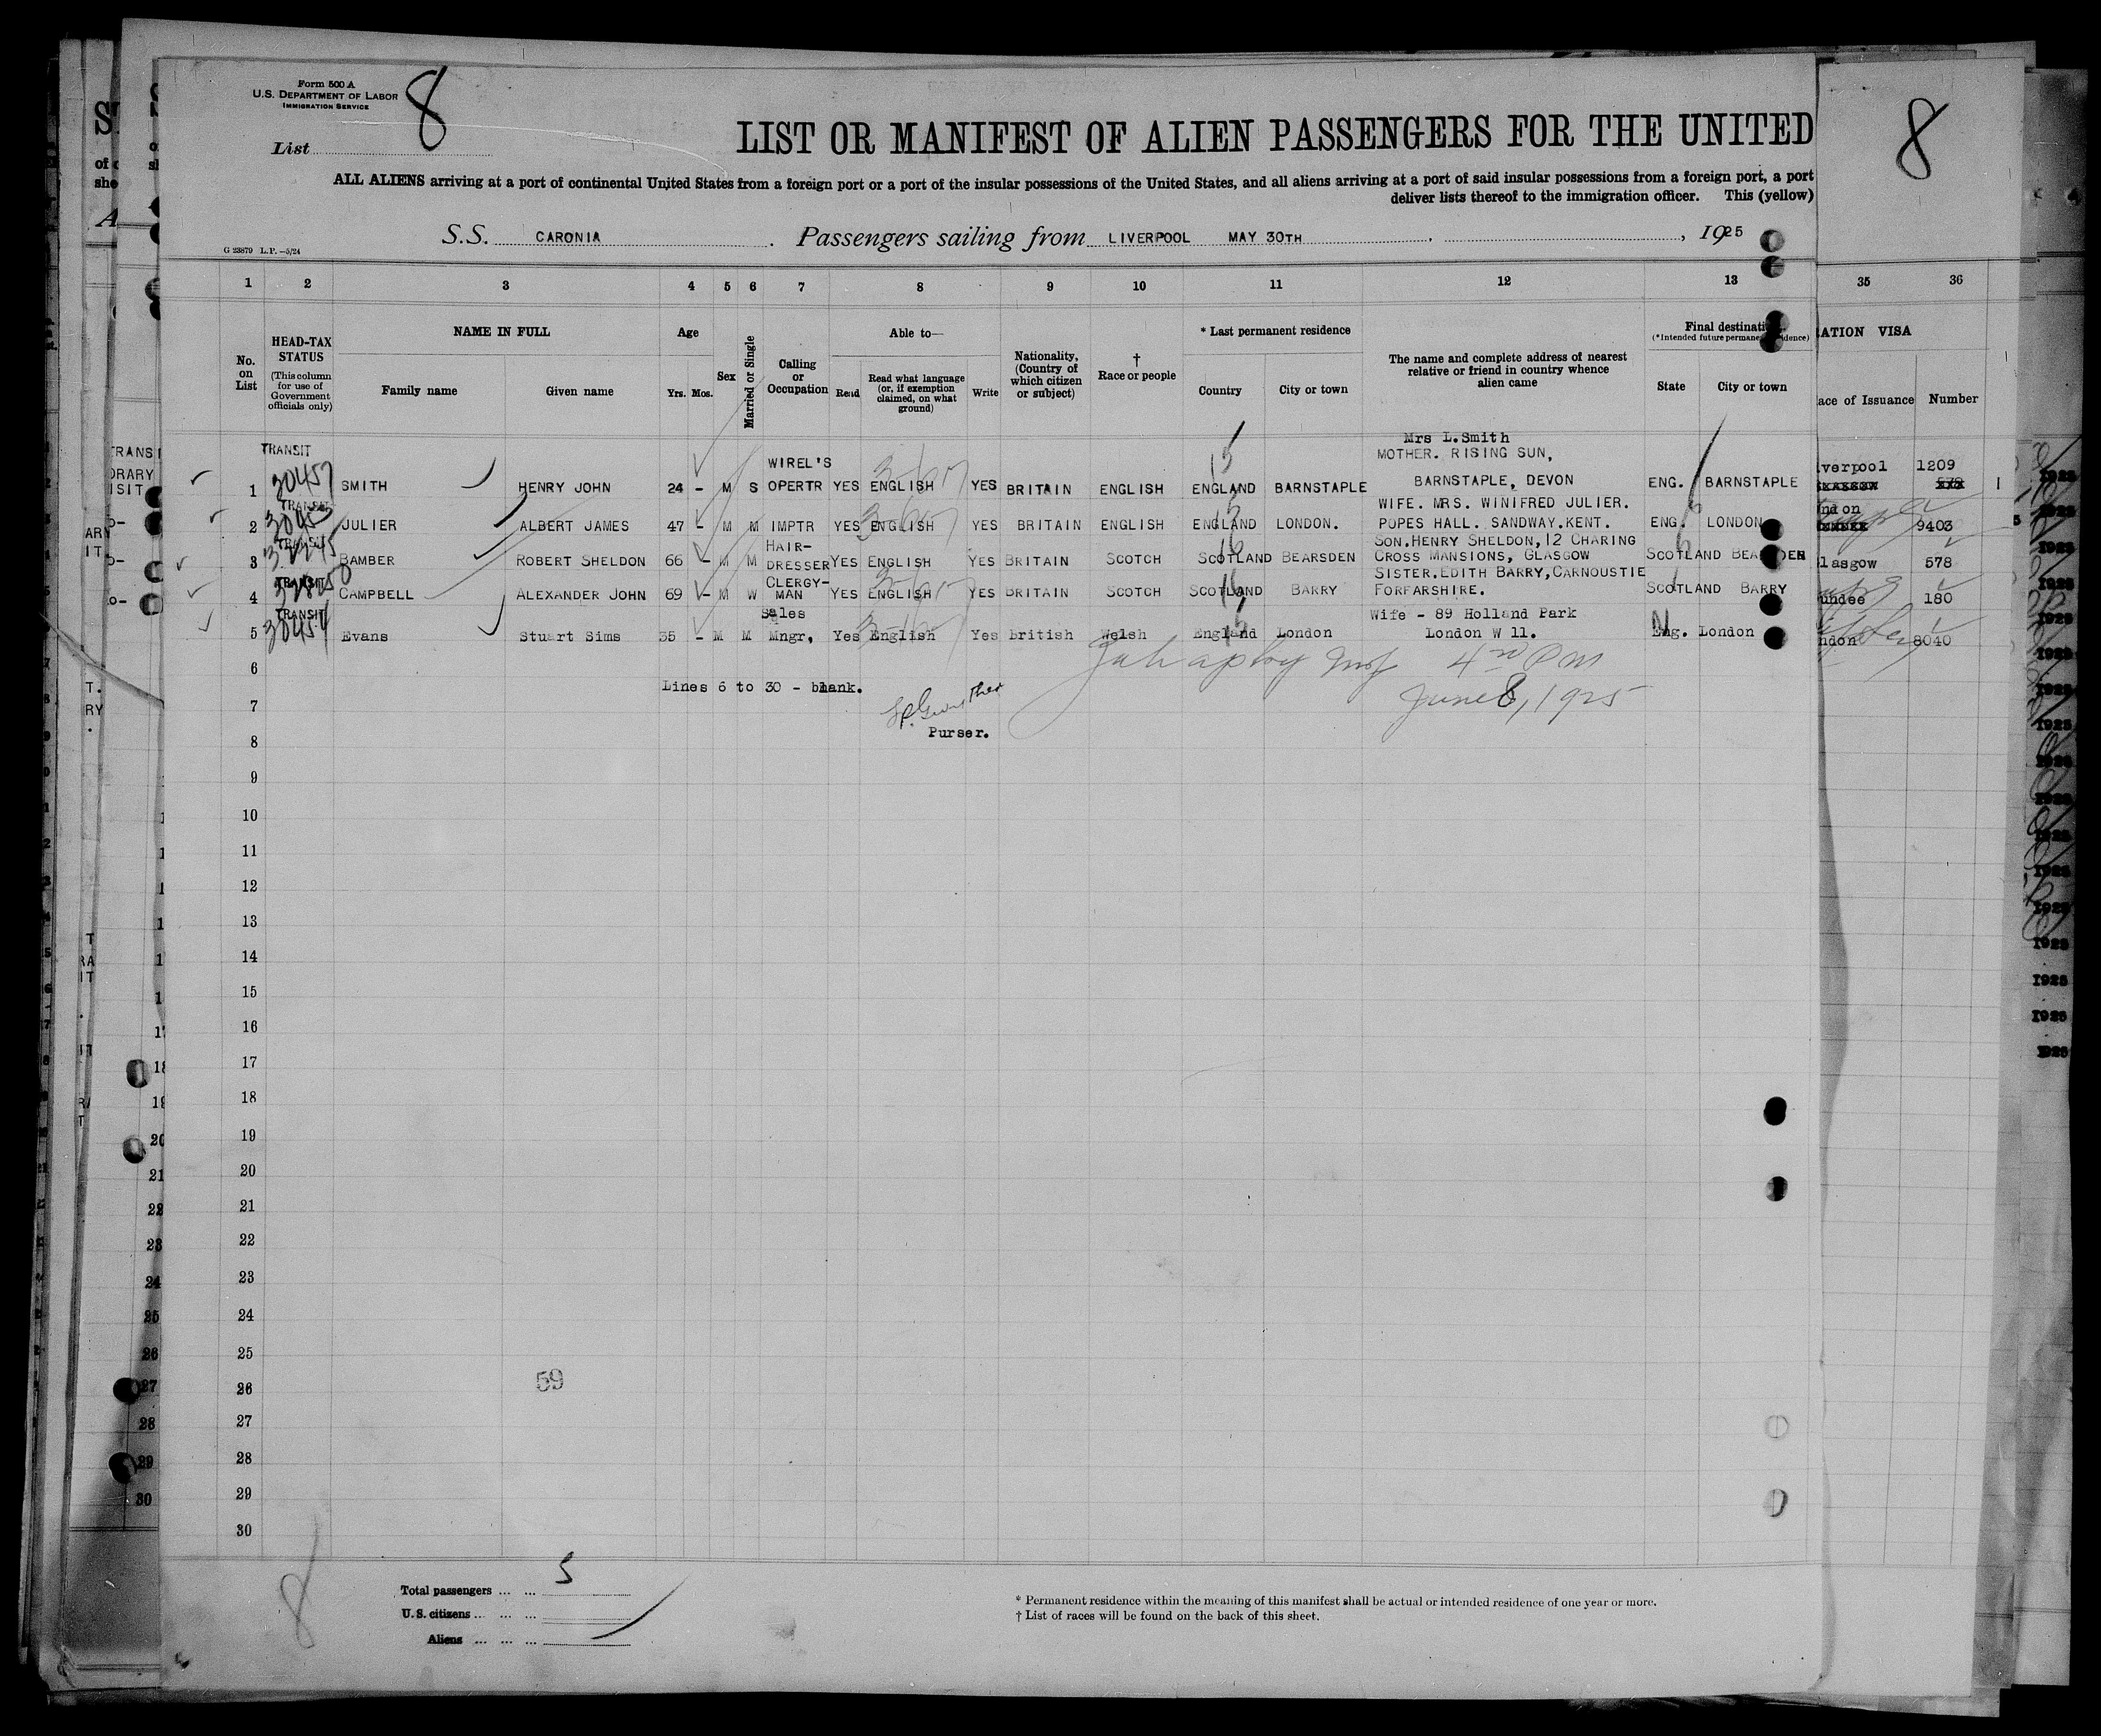 Form 500 A
U.S. DEPARTMENT OF LABOR
IMMIGRATION SERVICE
List 8
8
LIST OR MANIFEST OF ALIEN PASSENGERS FOR THE UNITED
ALL ALIENS arriving at a port of continental United States from a foreign port or a port of the insular possessions of the United States, and all aliens arriving at a port of said insular possessions from a foreign port, a port
deliver lists thereof to the immigration officer. This (yellow)
G 23879 L.P.—5/24
S.S. CARONIA. Passengers sailing from LIVERPOOL MAY 30TH, 1925
1 2 3 4 5 6 7 8 9 10 11 12 13 35 36
No. on List
HEAD-TAX STATUS
(This column for use of Government officials only)
NAME IN FULL
Family name
Given name
Age
Yrs. Mos.
Sex
Married or Single
Calling or Occupation
Able to—
Read
Read what language (or, if exemption claimed, on what ground)
Write
Nationality, (Country of which citizen or subject)
† Race or people
* Last permanent residence
Country
City or town
The name and complete address of nearest relative or friend in country whence alien came
Final destination
(*Intended future permanent residence)
State
City or town
ATION VISA
ace of Issuance
Number
TRANSIT Mrs L.Smith
WIREL'S MOTHER. RISING SUN,
1 30457 SMITH HENRY JOHN 24 - M S OPERTR YES ENGLISH YES BRITAIN ENGLISH ENGLAND BARNSTAPLE BARNSTAPLE, DEVON ENG. BARNSTAPLE verpool 1209
TRANSIT WIFE. MRS. WINIFRED JULIER.
2 JULIER ALBERT JAMES 47 - M M IMPTR YES ENGLISH YES BRITAIN ENGLISH ENGLAND LONDON. POPES HALL. SANDWAY.KENT. ENG. LONDON ndon 9403
TRANSIT HAIR- SON.HENRY SHELDON,12 CHARING
3 BAMBER ROBERT SHELDON 66 - M M DRESSER YES ENGLISH YES BRITAIN SCOTCH SCOTLAND BEARSDEN CROSS MANSIONS, GLASGOW SCOTLAND BEARSDEN lasgow 578
TRANSIT CLERGY- SISTER.EDITH BARRY,CARNOUSTIE
4 CAMPBELL ALEXANDER JOHN 69 - M W MAN YES ENGLISH YES BRITAIN SCOTCH SCOTLAND BARRY FORFARSHIRE. SCOTLAND BARRY undee 180
TRANSIT Sales Wife - 89 Holland Park
5 Evans Stuart Sims 35 - M M Mngr, Yes English Yes british Welsh England London London W 11. Eng. London ndon 8040
6
Lines 6 to 30 - blank.
4 PM
June 8, 1925
7
Purser.
8
9
10
11
12
13
14
15
16
17
18
19
20
21
22
23
24
25
59
26
27
28
29
30
8
Total passengers ... ... 5
U.S. citizens ... ... ...
Aliens ... ... ...
* Permanent residence within the meaning of this manifest shall be actual or intended residence of one year or more.
† List of races will be found on the back of this sheet.